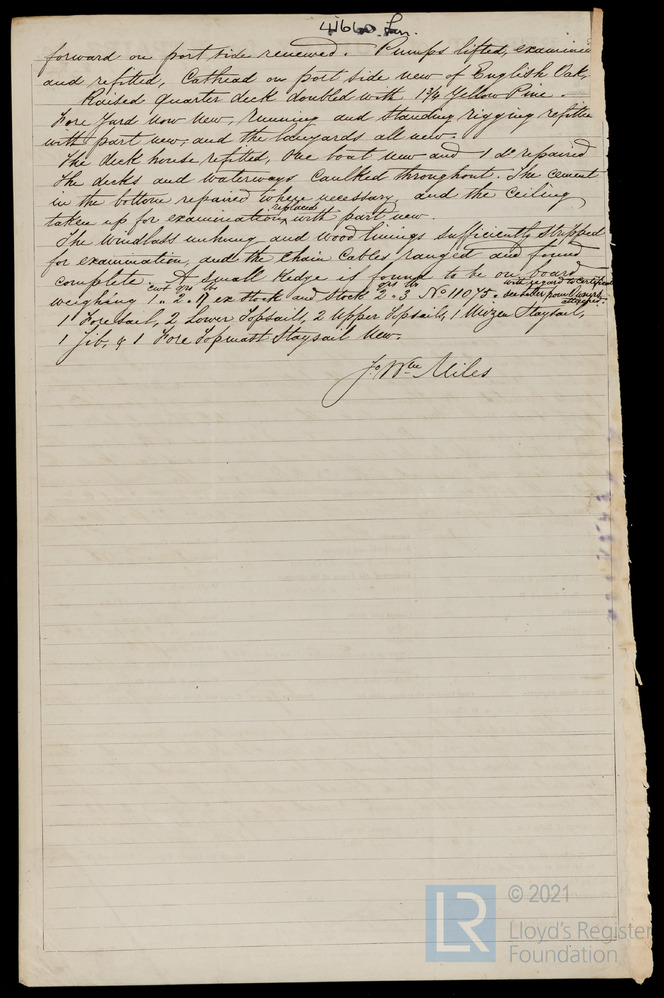 41660 Lan.
forward on port side renewed. Pumps lifted, examined
and refitted, Cathead on port side new of English Oak,
Raised quarter deck doubled with 1¾ Yellow Pine.
Fore Yard now new, running and standing rigging refitted
with part new, and the lanyards all new.
The deck house refitted, One boat new and 1 do repaired
The decks and waterways caulked throughout. The cement
in the bottom repaired where necessary and the ceiling
taken up for examination, replaced with part new.
The windlass unhung and wood linings sufficiently stripped
for examination, and the Chain Cables ranged and found
complete. A small Kedge is found to be on board
weighing 1 cwt 2 qrs 17 lbs ex Stock and Stock 2 qrs 3 lbs No 11075. with regard to certificate see letter from Owners attached.
1 Foresail, 2 Lower Topsails, 2 Upper Topsails, 1 Mizen Staysail,
1 Jib, & 1 Fore Topmast Staysail New.
Jo Wm Miles
LR
© 2021
Lloyd's Register
Foundation